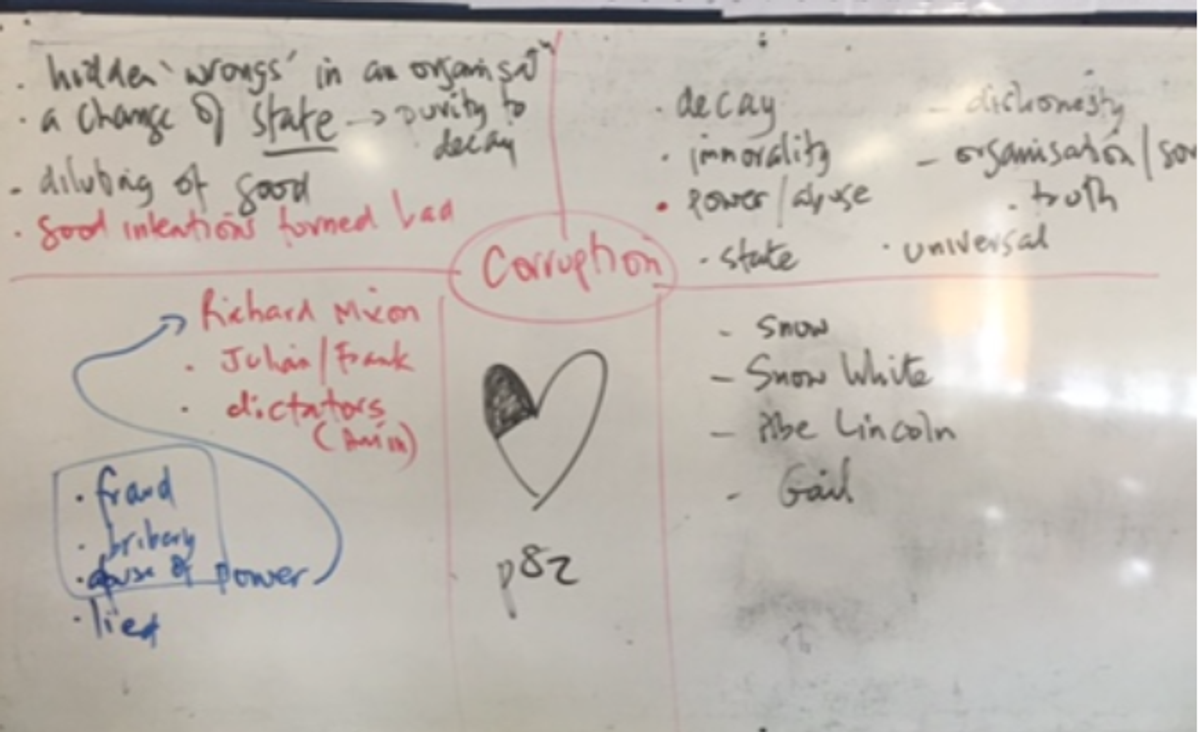 . hidden 'wrongs' in an organisat"
. a change of state -> purity to
decay
- diluting of good
. good intentions turned bad
. decay
. immorality
. power/abuse
. state
- dishonesty
- organisation/
. truth
. universal
Corruption
Richard Nixon
. Julian/Frank
. dictators
(Amin)
. fraud
. bribery
. abuse of power
. lied
p82
- Snow
- Snow White
- Abe Lincoln
- Gail